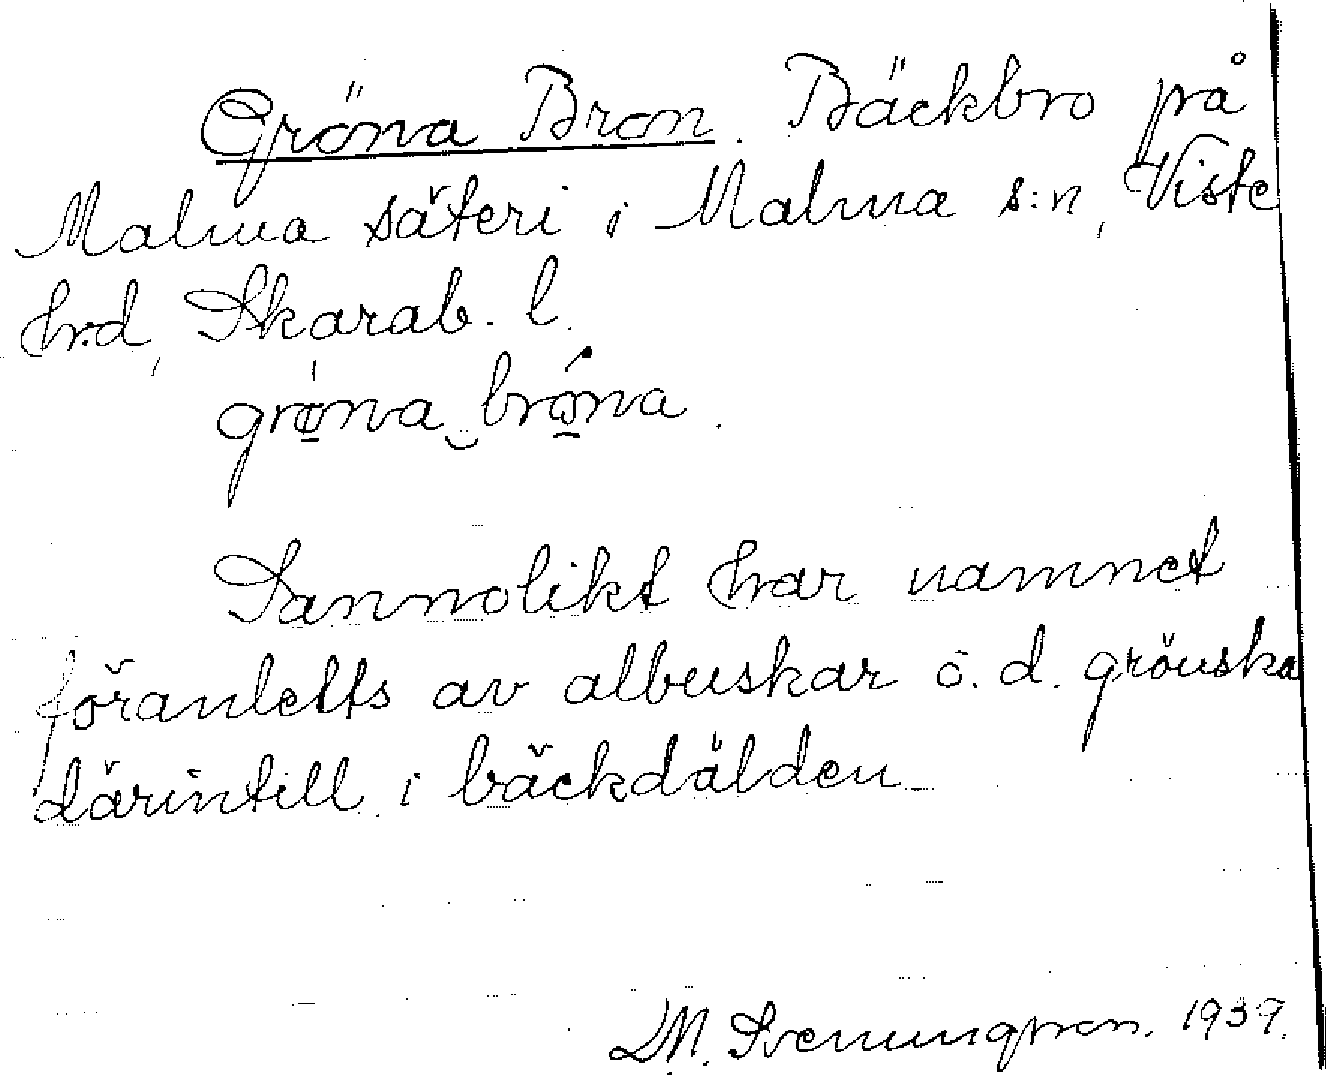 Gröna Bron. Bäckbro på
Malma säteri i Malma s:n, Viste
hrd, Skarab. l.
grøna brøna.
Sannolikt har namnet
föranletts av albuskar o. d. grönska
därintill i bäckdälden
M. Svenungsson. 1939.